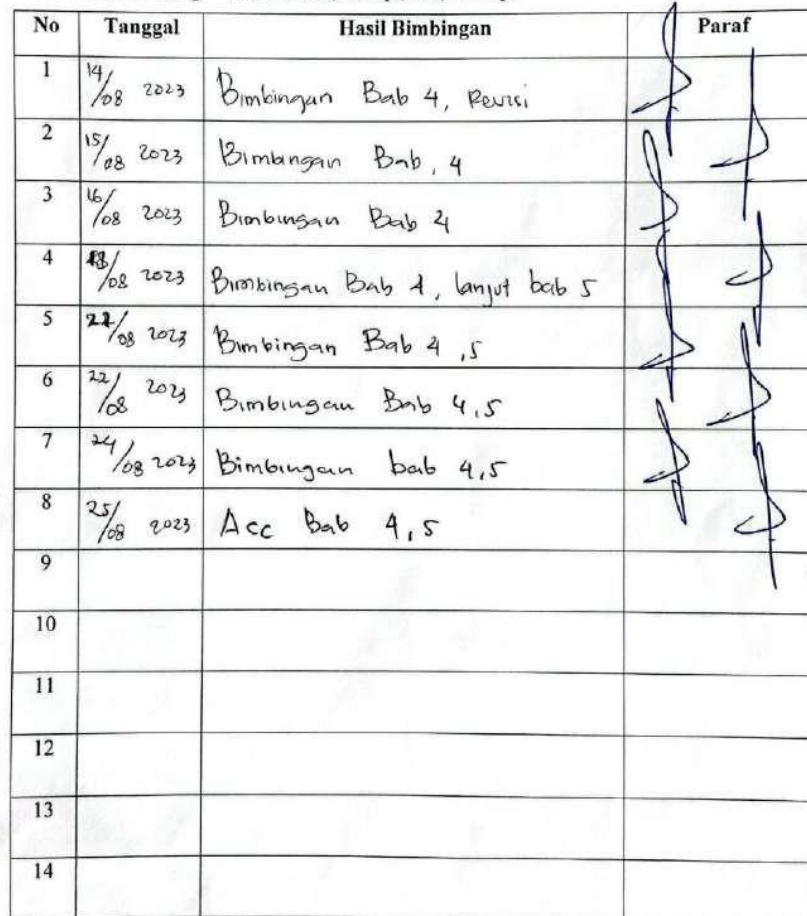 No Tanggal Hasil Bimbingan Paraf
1 14/08 2023 Bimbingan Bab 4, Revisi
2 15/08 2023 Bimbingan Bab, 4
3 16/08 2023 Bimbingan Bab 4
4 18/08 2023 Bimbingan Bab 4, lanjut bab 5
5 /08 2023 Bimbingan Bab 4,5
6 22/08 2023 Bimbingan Bab 4,5
7 24/08 2023 Bimbingan bab 4,5
8 25/08 2023 Acc Bab 4,5
9
10
11
12
13
14